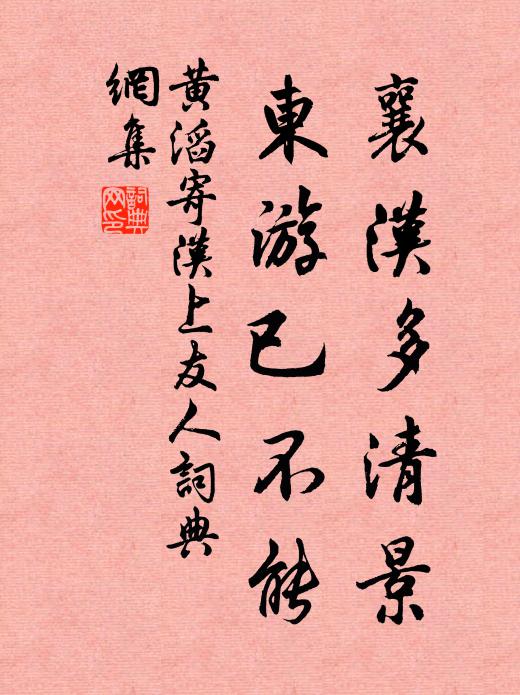 襄漢多清景
東游已不能
黃滔寄漢上友人詞典
網集
詞典
网印